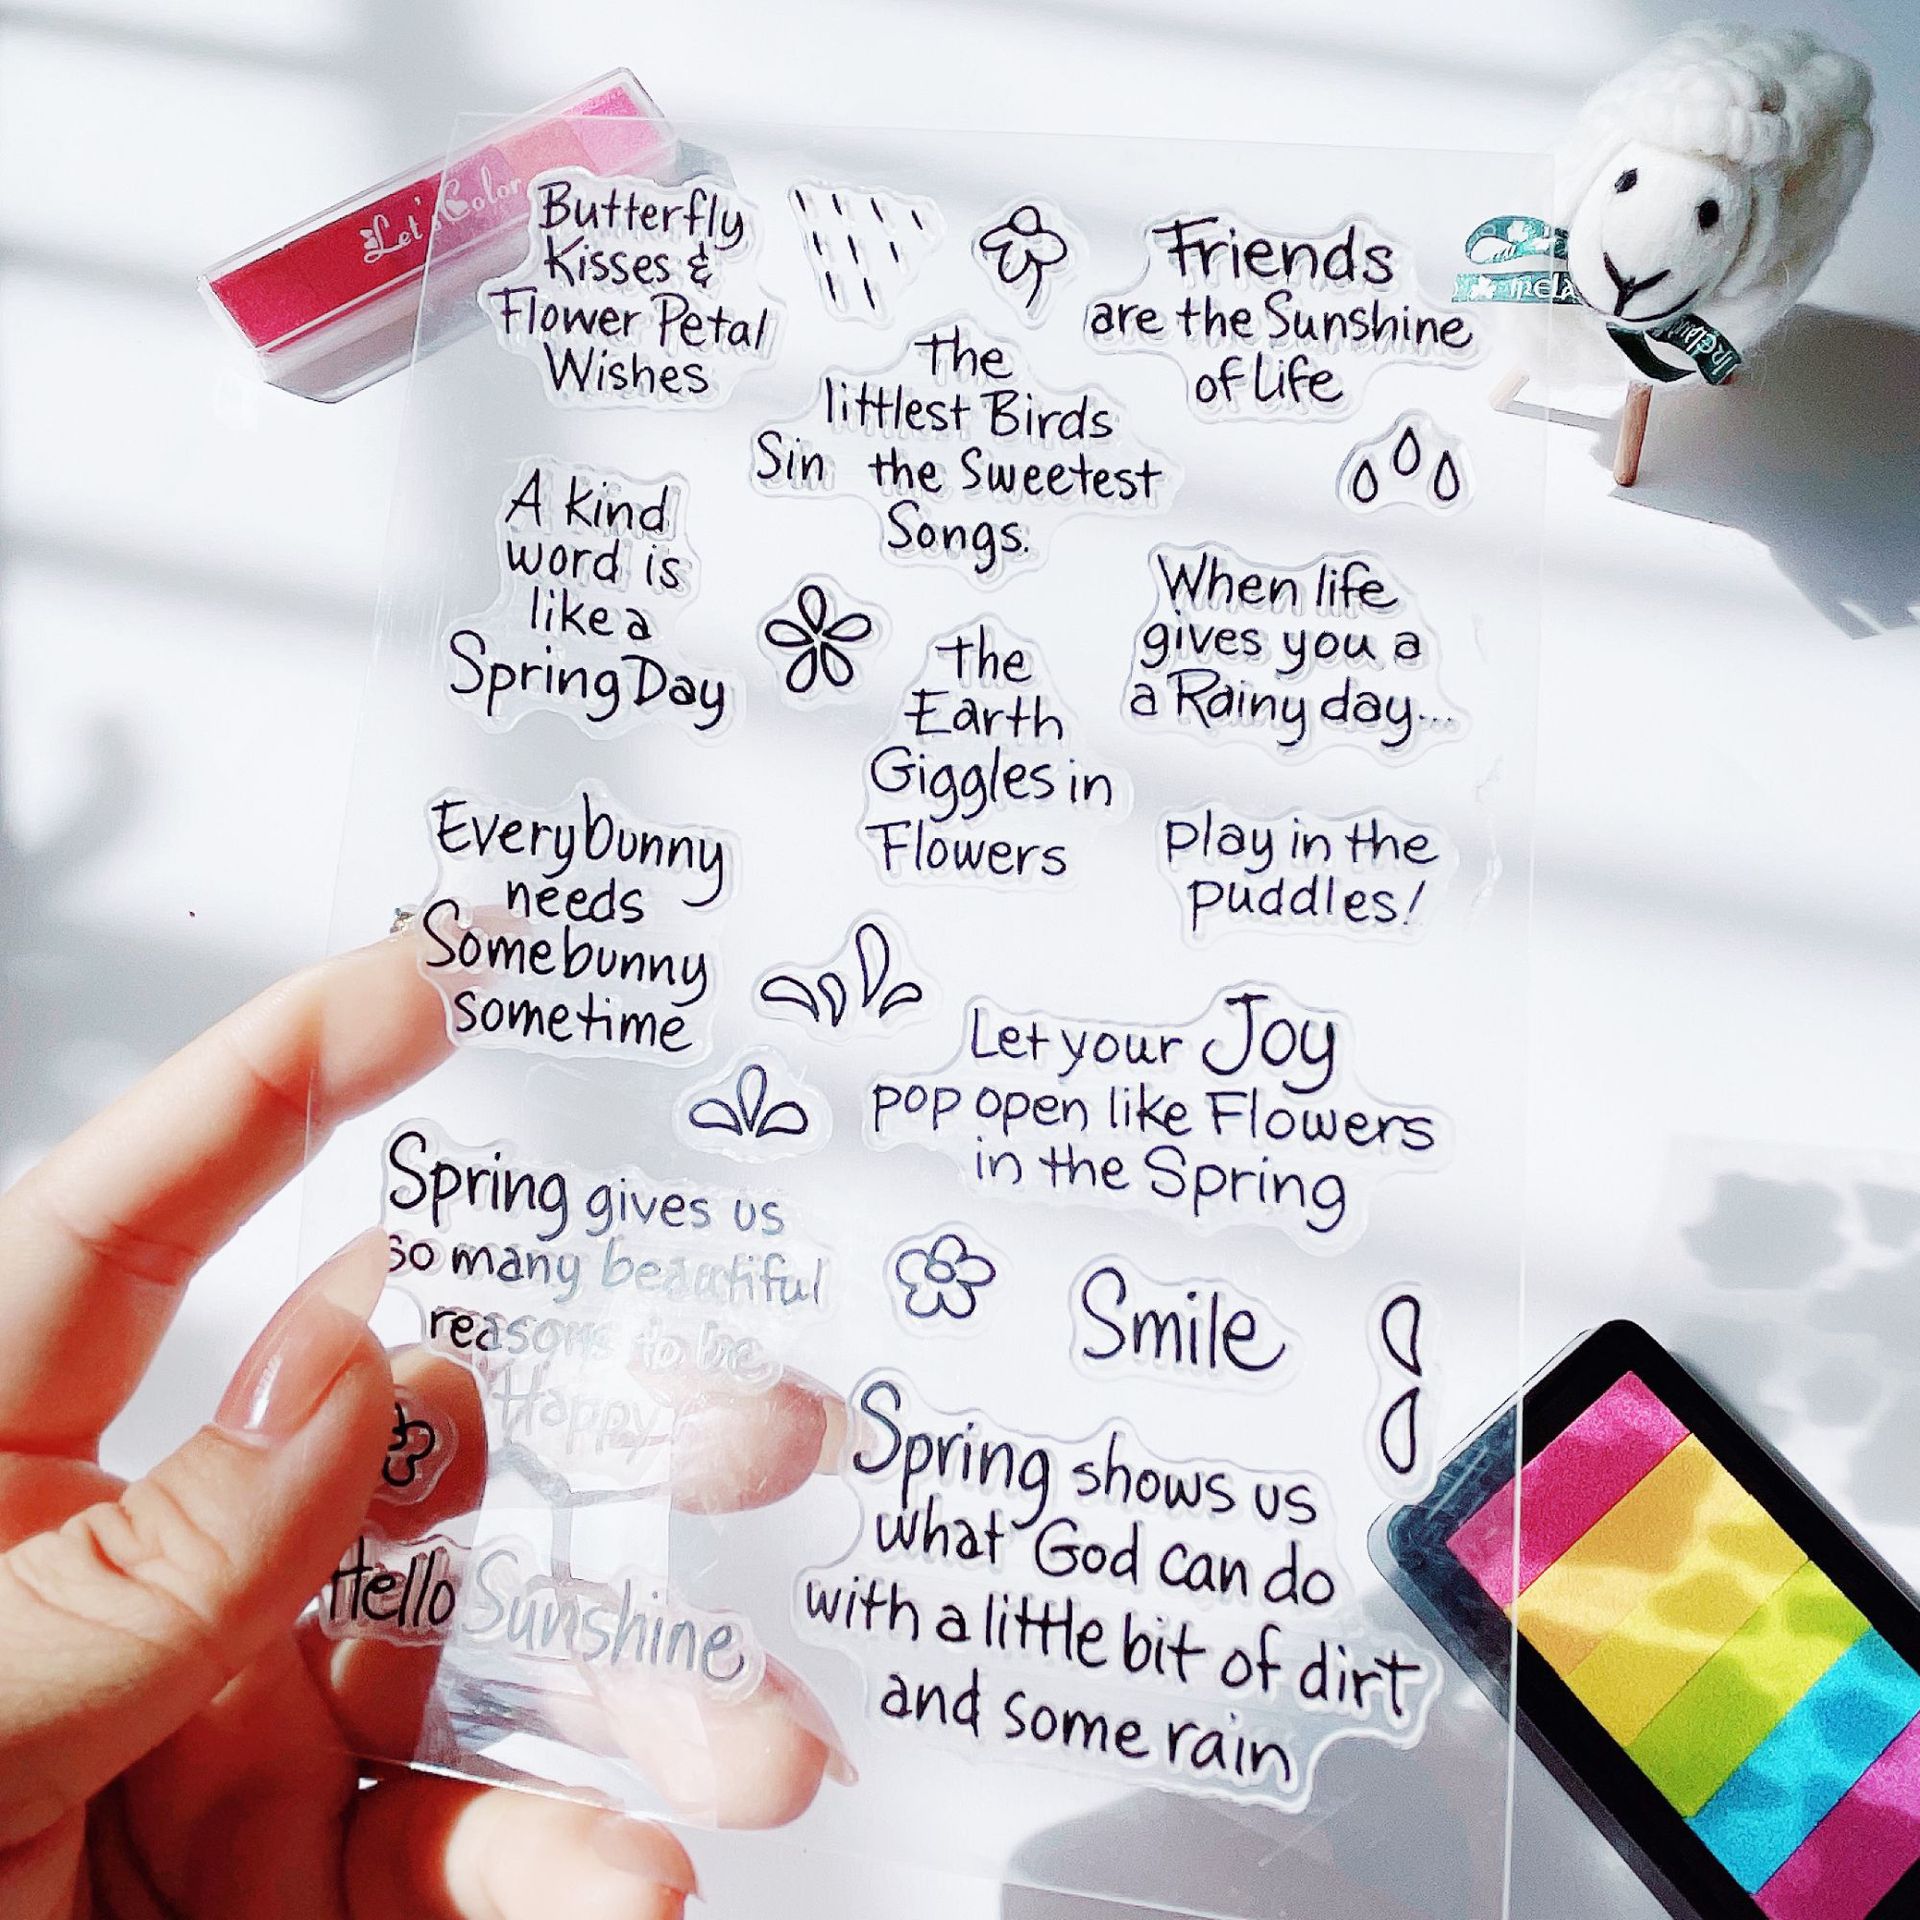 Let's Color
Butterfly
Kisses &
Flower Petal
Wishes
Friends
are the Sunshine
of Life
The
littlest Birds
Sin the Sweetest
Songs.
A kind
word is
like a
Spring Day
When life
gives you a
a Rainy day...
The
Earth
Giggles in
Flowers
play in the
puddles!
Everybunny
needs
Somebunny
sometime
Let your Joy
pop open like Flowers
in the Spring
Spring gives us
so many beautiful
reasons to be
Happy
Smile
Spring shows us
what God can do
with a little bit of dirt
and some rain
Hello Sunshine